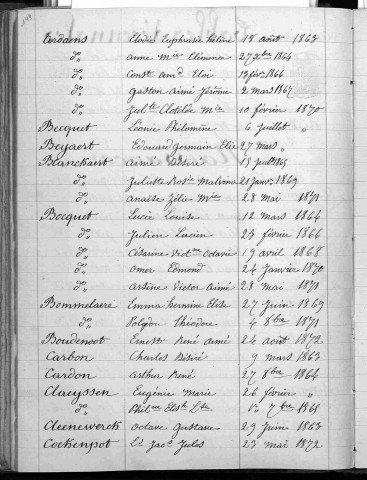 Verdaens Elodie Euphrasie Hélène 18 août 1863
d° Anne Mie Clémence 27 9bre 1864
d° Const. Amd Eloi 13 fév. 1866
d° Gaston Aimé Jérôme 2 mars 1867
d° Jul.te Clotilde Mie 10 février 1870
Becquet Léonie Philomène 6 juillet "
Beyaert Edouard Germain Elie 27 mars "
Blanckaert Aimé Désiré 15 juillet 1865
d° Juliette Rosie Malvina 21 janv. 1869
d° Anaïse Zélie Mie 28 mai 1871
Bocquet Lucie Louise 12 mars 1864
d° Julien Lucien 23 février 1866
d° Césarine Vict.ne Octavie 19 avril 1868
d° Omer Edmond 24 janvier 1870
d° Arsène Victor Aimé 21 mai 1871
Bommelaere Emma Hermine Elise 27 juin 1869
d° Polydor Théodore 4 8bre 1871
Boudenoot Ernest René Aimé 24 août 1872
Carbon Charles Désiré 9 mars 1863
Cardon Arthur René 27 8bre 1864
Claeyssen Eugénie Marie 26 février "
d° Phil.ne Elisth Lse 7bre 1865
Cleenewerck Octave Gustave 29 juin 1863
Cockenpot Ls Jacq. Jules 23 mai 1872